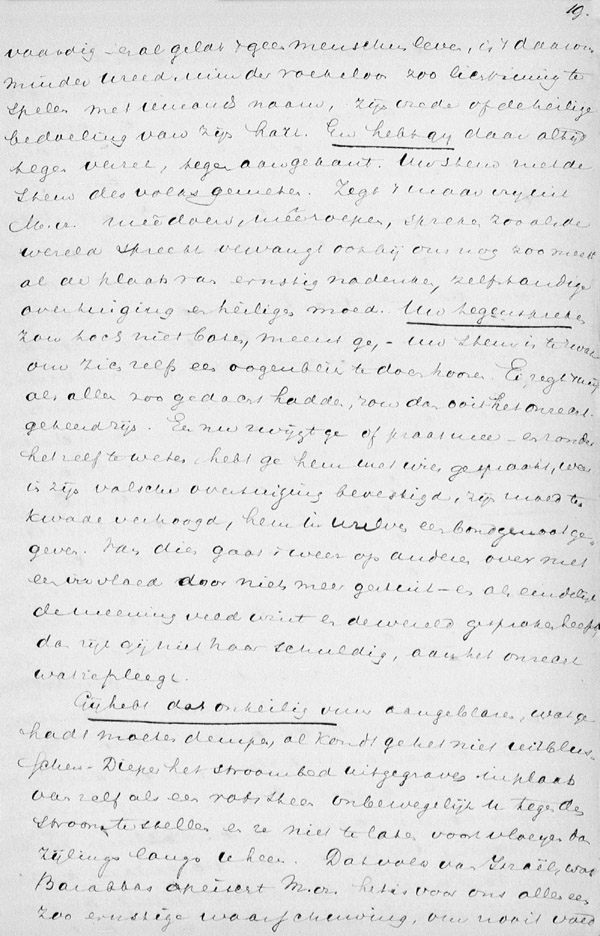 19.
vaardig - er al geldt 't geen menschenleven, is 't daarom
minder wreed, minder roekeloos zoo lichtzinnig te
spelen met iemands naam, zijn vrede of de heilige
bedoeling van zijn hart. En hebt gij daar altijd
tegen verzet, tegen aangekant. Uw stem met de
stem des volks gemeten. Zegt 't maar vrij uit
M. vr. meêdoen, meêroepen, spreken zooals de
wereld spreekt vervangt ook bij ons nog zoo meest
al de plaats van ernstig nadenken, zelfstandige
overtuiging en heiligen moed. Uw tegenspreken
zou toch niet baten, meent ge, - uw stem is te zwak
om zich zelfs een oogenblik te doen hooren. Ei, zegt mij
als allen zoo gedacht hadden, zou dan ooit het onrecht
gekeerd zijn. En nu zwijgt ge of praat mee - en zonder
het zelf te weten, hebt ge hem met wien ge spraakt, weer
in zijn valsche overtuiging bevestigd, zijn moed ten
kwade verhoogd, hem in uzelven een bondgenoot ge-
geven. Van dien gaat 't weer op anderen over met
een invloed door niets meer gestuit - en als eindelijk
de meening veld wint en de wereld gesproken heeft
dan zijt gij niet haar schuldig, aan het onrecht
wat ze pleegt.
Gij hebt dat onheilig vuur aangeblazen, wat ge
hadt moeten dempen, al kondt ge het niet uitblus-
schen - Dieper het stroombed uitgegraven in plaats
van zelf als een rots steen onbewegelijk u tegen den
stroom te stellen en ze niet te laten voortvloeyen dan
zijlings langs u heen. Dat volk van Israël, wat
Barabbas opeischt M. vr. het is voor ons allen een
zoo ernstige waarschuwing, om nooit